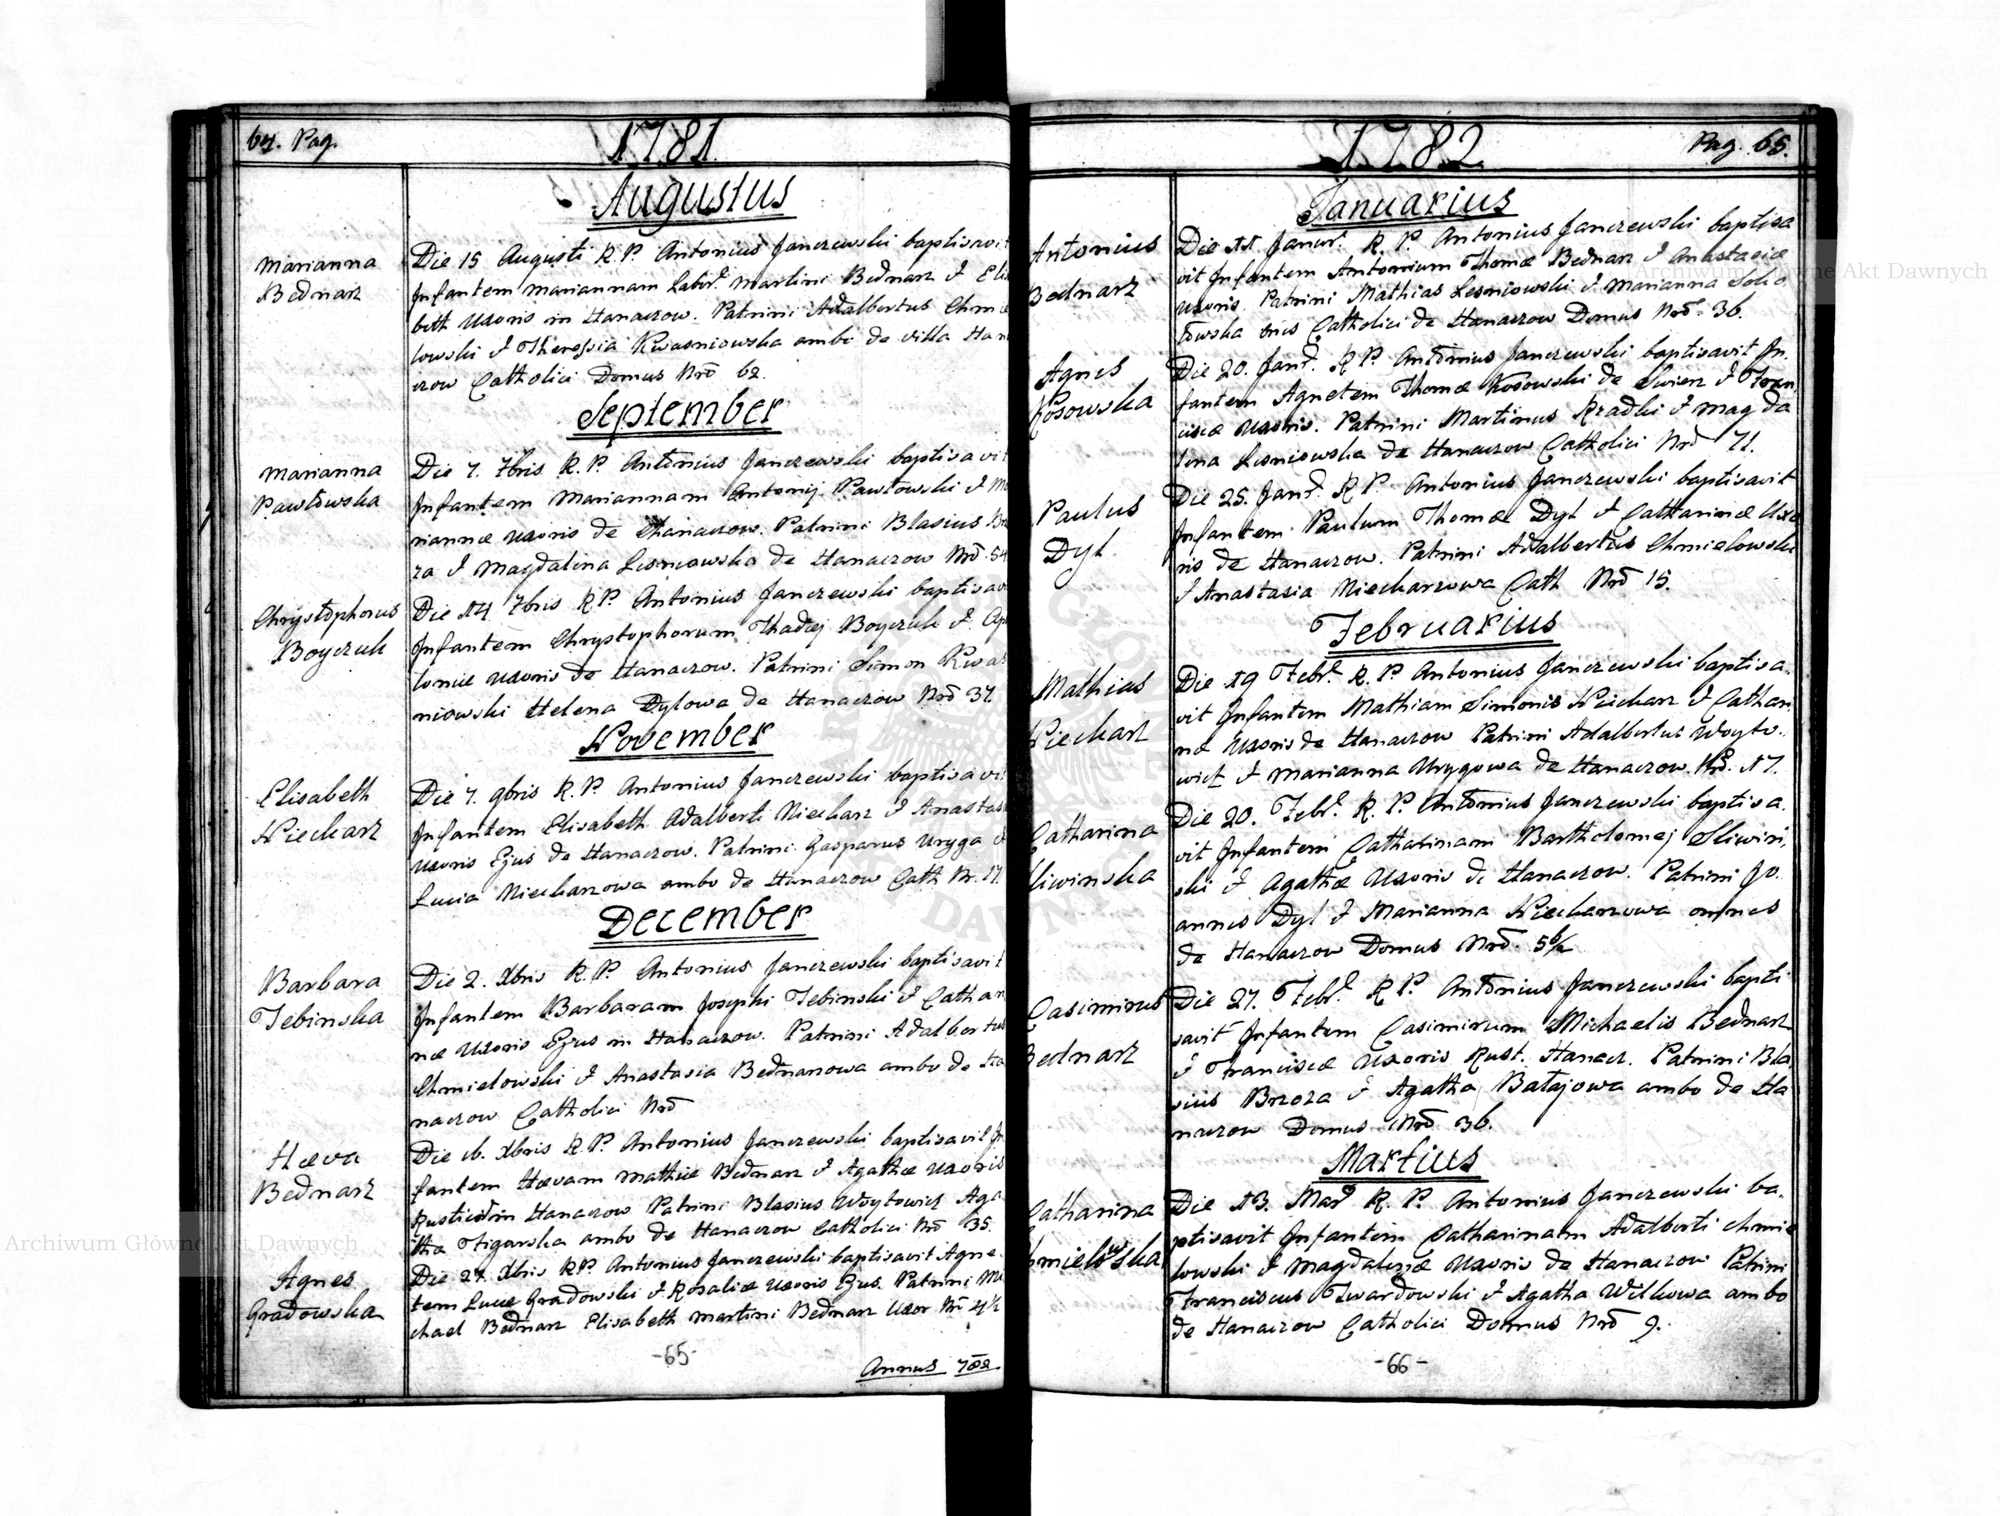 64. Pag.
1781.
Augustus
Marianna
Bednarz
Die 15 Augusti R. P. Antonius Janczewski baptisavit
Infantem Mariannam Labor. Martini Bednarz & Elisa
beth Uxoris in Hanaczow. Patrini Adalbertus Chmie
lowski & Theressia Kwasniowska ambo de villa Han
czow Catholici Domus Nro 62.
September
Marianna
Pawłowska
Die 7. 7bris R. P. Antonius Janczewski baptisavit
Infantem Mariannam Antonij Pawłowski & Ma
riannæ Uxoris de Hanaczow. Patrini Blasius Brzo
za & Magdalena Lesniowska de Hanaczow Nro 54
Chrystophorus
Boyczuk
Die 14 7bris R P. Antonius Janczewski baptisavit
Infantem Chrystophorum Thadej Boyczuk & Apo
loniæ Uxoris de Hanaczow. Patrini Simon Kwas
niowski Helena Dylowa de Hanaczow Nro 37.
November
Elisabeth
Niecharz
Die 7. 9bris R. P. Antonius Janczewski baptisavit
Infantem Elisabeth Adalberti Niecharz & Anastas
Uxoris Ejus de Hanaczow. Patrini Gasparus Uryga &
Lucia Niecharzowa ambo de Hanaczow Cath Nr. 17.
December
Barbara
Tebinska
Die 2. Xbris R. P. Antonius Janczewski baptisavit
Infantem Barbaram Josephi Tebinski & Cathari
næ Uxoris Ejus in Hanaczow. Patrini Adalbertus
Chmielowski & Anastasia Bednarzowa ambo de Ha
naczow Catholici Nro
Hæva
Bednarz
Die 16. Xbris R. P. Antonius Janczewski baptisavit In
fantem Hævam Mathiæ Bednarz & Agathæ Uxoris
Rustici in Hanaczow Patrini Blasius Woytowicz Aga
tha Figurska ambo de Hanaczow Catholici Nro 35.
Agnes
Gradowska
Die 27. Xbris R P. Antonius Janczewski baptisavit Agne
tem Lucæ Gradowski & Rosaliæ Uxoris Ejus. Patrini Mi
chael Bednarz Elisabeth Martini Bednarz Uxor Nr 4½
-65-
Annus 782
1782
Pag. 65.
Januarius
Antonius
Bednarz
Die 11. Januar. R. P. Antonius Janczewski baptisa
vit Infantem Antonium Thomæ Bednarz & Anastasiæ
Uxoris. Patrini Mathias Lesniowski & Marianna Soko
łowska ones Catholici de Hanaczow Domus Nro. 36.
Agnes
Kosowska
Die 20. Janr. R P. Antonius Janczewski baptisavit In
fantem Agnetem Thomæ Kosowski de Swierz & Fran
ciscæ Uxoris. Patrini Martinus Rzadki & Magda
lena Lesniowska de Hanaczow Catholici Nro 71.
Paulus
Dyl.
Die 25. Janr. R P. Antonius Janczewski baptisavit
Infantem Paulum Thomæ Dyl & Catharinæ Uxo
ris de Hanaczow. Patrini Adalbertus Chmielowski
& Anastasia Niecharzowa Cath Nro 15.
Februarius
Mathias
Niecharz
Die 19 Febr. R. P Antonius Janczewski baptisa.
vit Infantem Mathiam Simonis Niecharz & Cathari
næ Uxoris de Hanaczow Patrini Adalbertus Woyto.
wicz & Marianna Urygowa de Hanaczow. Nro. 17.
Catharina
Sliwinska
Die 20. Febr. R. P. Antonius Janczewski baptisa.
vit Infantem Catharinam Bartholomej Sliwin,
ski & Agathæ Uxoris de Hanaczow. Patrini Jo.
annes Dyl & Marianna Niecharzowa omnes
de Hanaczow Domus Nro. 5½
Casimirus
Bednarz
Die 27. Febr. R P. Antonius Janczewski bapti
savit Infantem Casimirum Michaelis Bednarz
& Franciscæ Uxoris Rust. Hanacz. Patrini Bla
sius Brzoza & Agatha Batajowa ambo de Ha
naczow Domus Nro 36.
Martius
Catharina
Chmielowska
Die 13. Mar R. P. Antonius Janczewski ba.
ptisavit Infantem Catharinam Adalberti Chmie
lowski & Magdalenæ Uxoris de Hanaczow Patrini
Franciscus Twardowski & Agatha Wilkowa ambo
de Hanaczow Catholici Domus Nro 9.
-66-
Archiwum Główne Akt Dawnych
Archiwum Główne Akt Dawnych